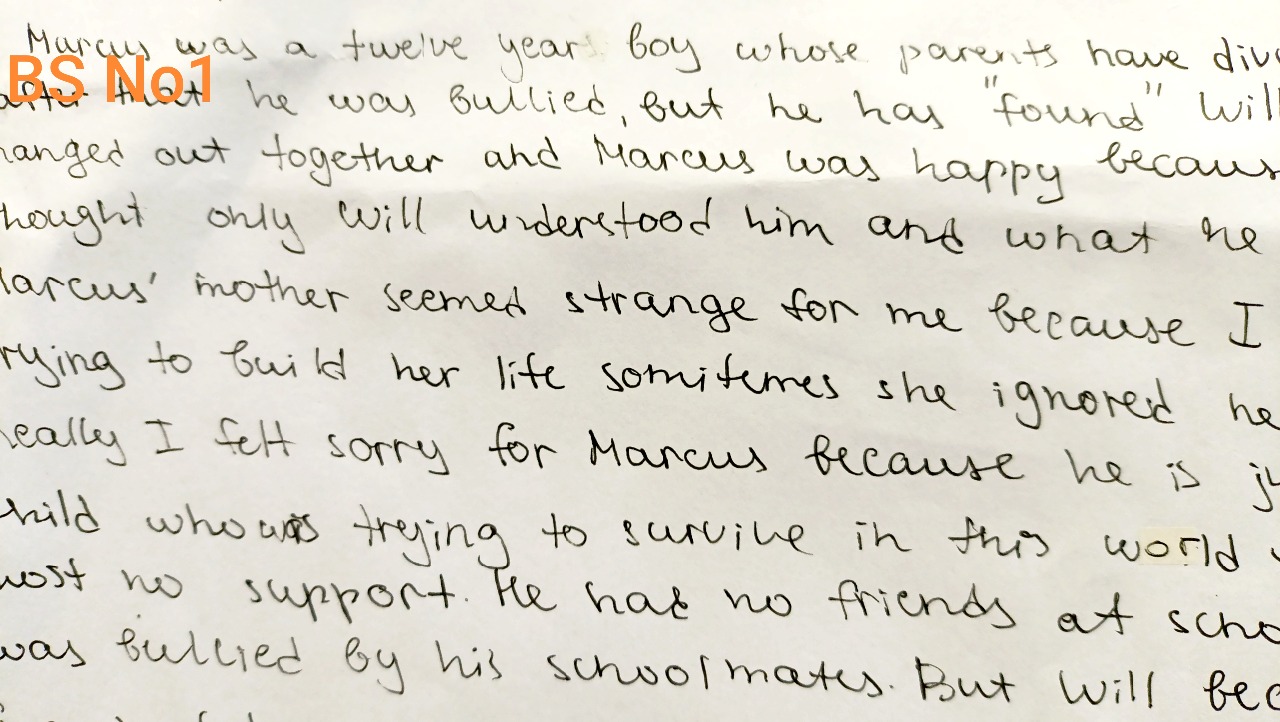 Marcus was a twelve year boy whose parents have div
BS No1
after that he was bullied, but he has "found" Will
hanged out together and Marcus was happy becaus
hought only Will understood him and what he
arcus' mother seemed strange for me because I
rying to build her life somitemes she ignored he
eally I felt sorry for Marcus because he is ju
hild who was trying to survive in this world
most no support. He had no friends at scho
was bullied by his schoolmates. But Will bec